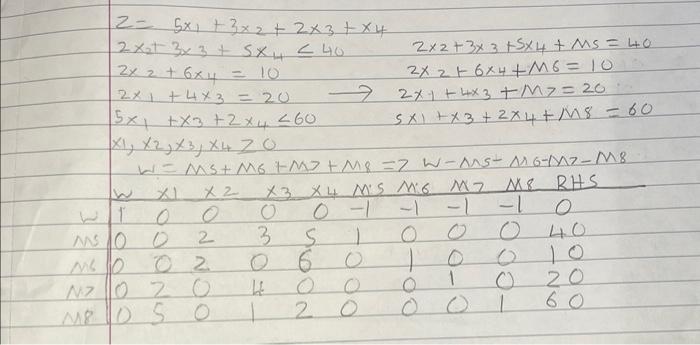 Z = 5x1 + 3x2 + 2x3 + x4
2x2 + 3x3 + 5x4 ≤ 40 2x2 + 3x3 + 5x4 + M5 = 40
2x2 + 6x4 = 10 2x2 + 6x4 + M6 = 10
2x1 + 4x3 = 20 → 2x1 + 4x3 + M7 = 20
5x1 + x3 + 2x4 ≤ 60 5x1 + x3 + 2x4 + M8 = 60
x1, x2, x3, x4 ≥ 0
W = M5 + M6 + M7 + M8 => W - M5 - M6 - M7 - M8
W x1 x2 x3 x4 M5 M6 M7 M8 RHS
W 1 0 0 0 0 -1 -1 -1 -1 0
M5 0 0 2 3 5 1 0 0 0 40
M6 0 0 2 0 6 0 1 0 0 10
M7 0 2 0 4 0 0 0 1 0 20
M8 0 5 0 1 2 0 0 0 1 60